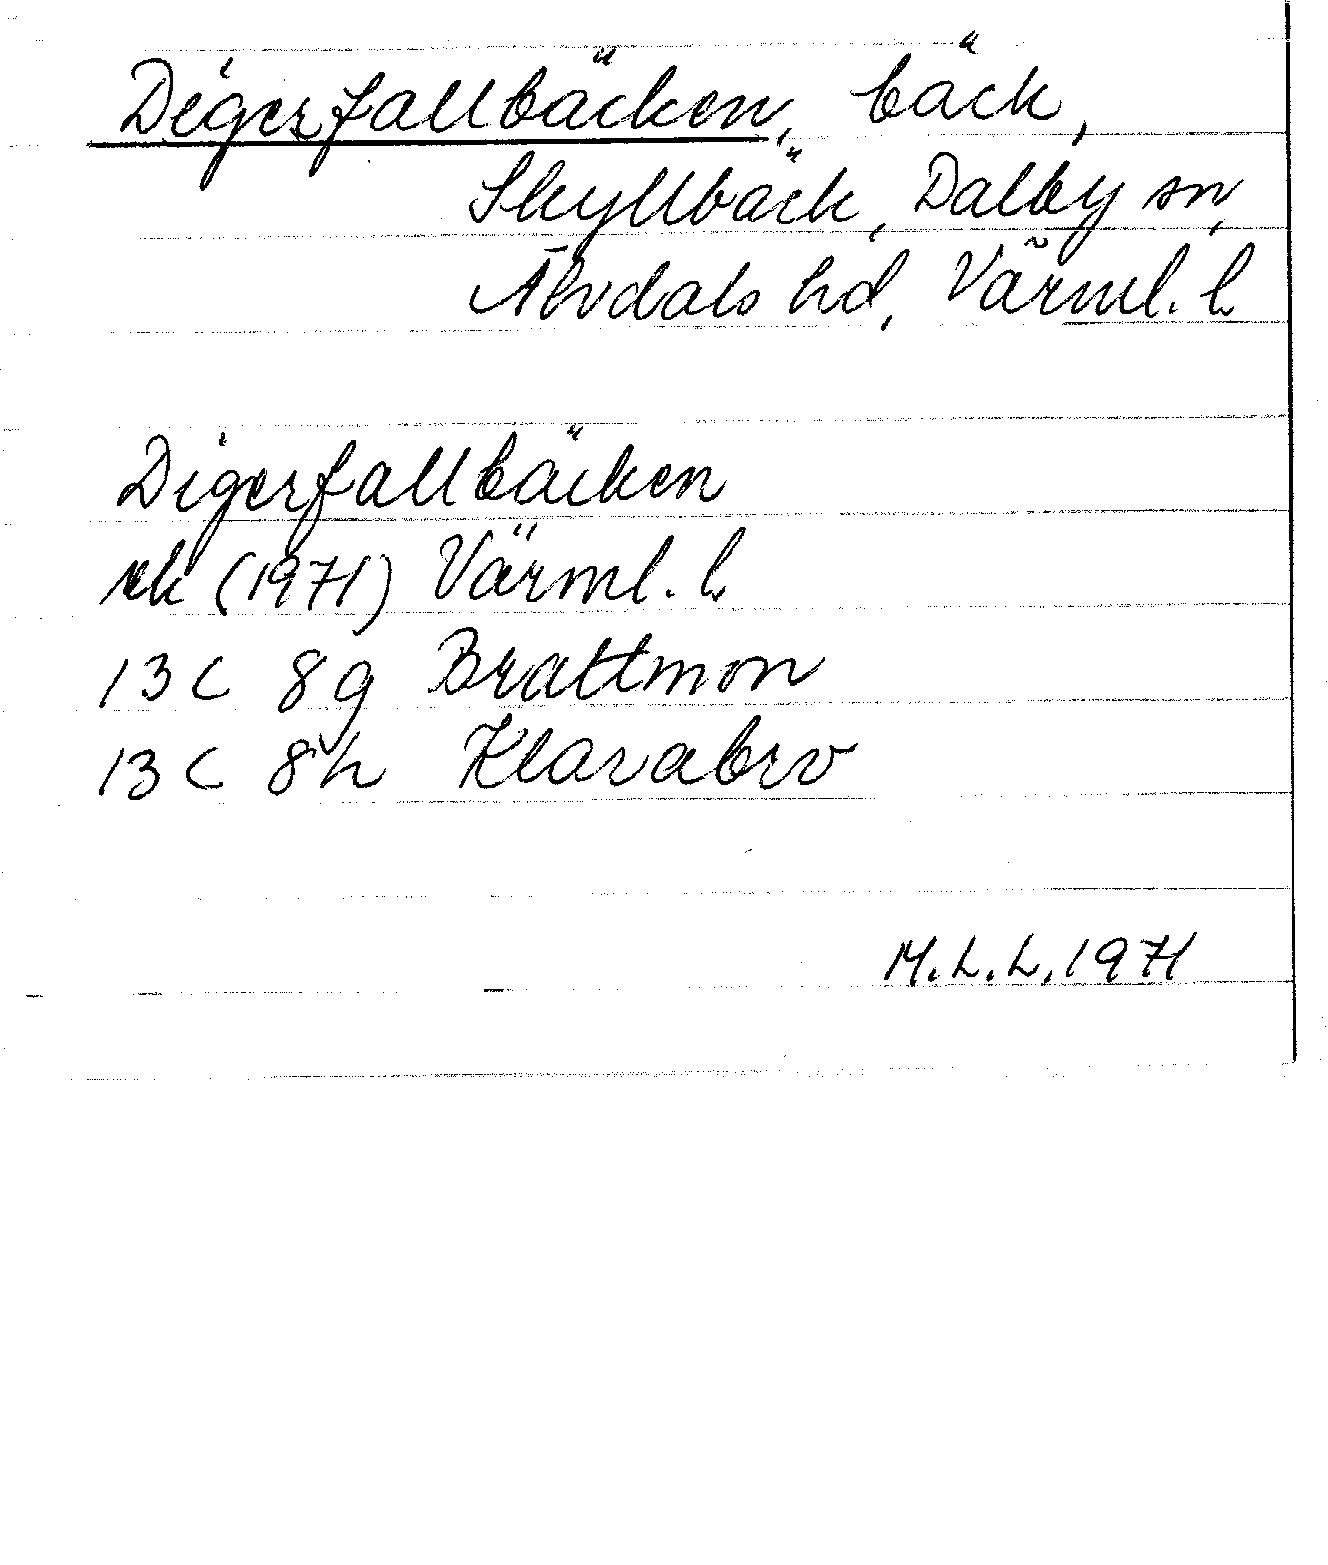 Digerfallbäcken, bäck,
Skyllbäck, Dalby sn,
Älvdals hd, Värml. l.
Digerfallbäcken
rek (1971) Värml. l.
13 C 8g Brattmon
13 C 8h Klarabro
M.L.L. 1971